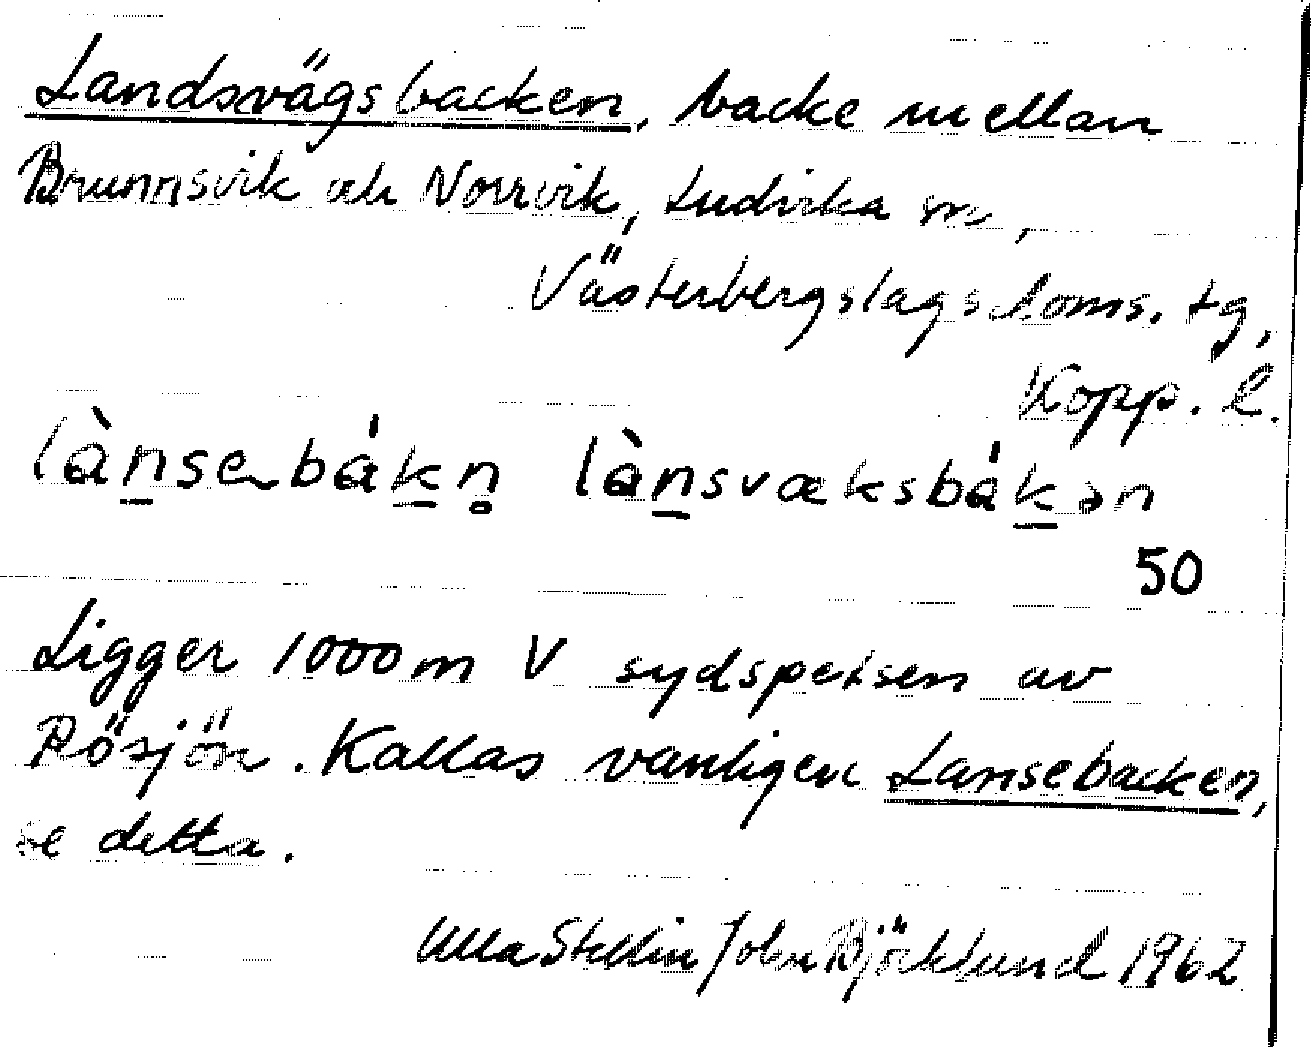 Landsvägsbacken, backe mellan
Brunnsvik och Norrvik, Ludvika sn,
Västerbergslags doms. tg,
Kopp. l.
lànsebákn̥ lànsvæksbákən
50
Ligger 1000 m V sydspetsen av
Rösjön. Kallas vanligen Lansebacken,
se detta.
Ulla Stellin John Björklund 1962